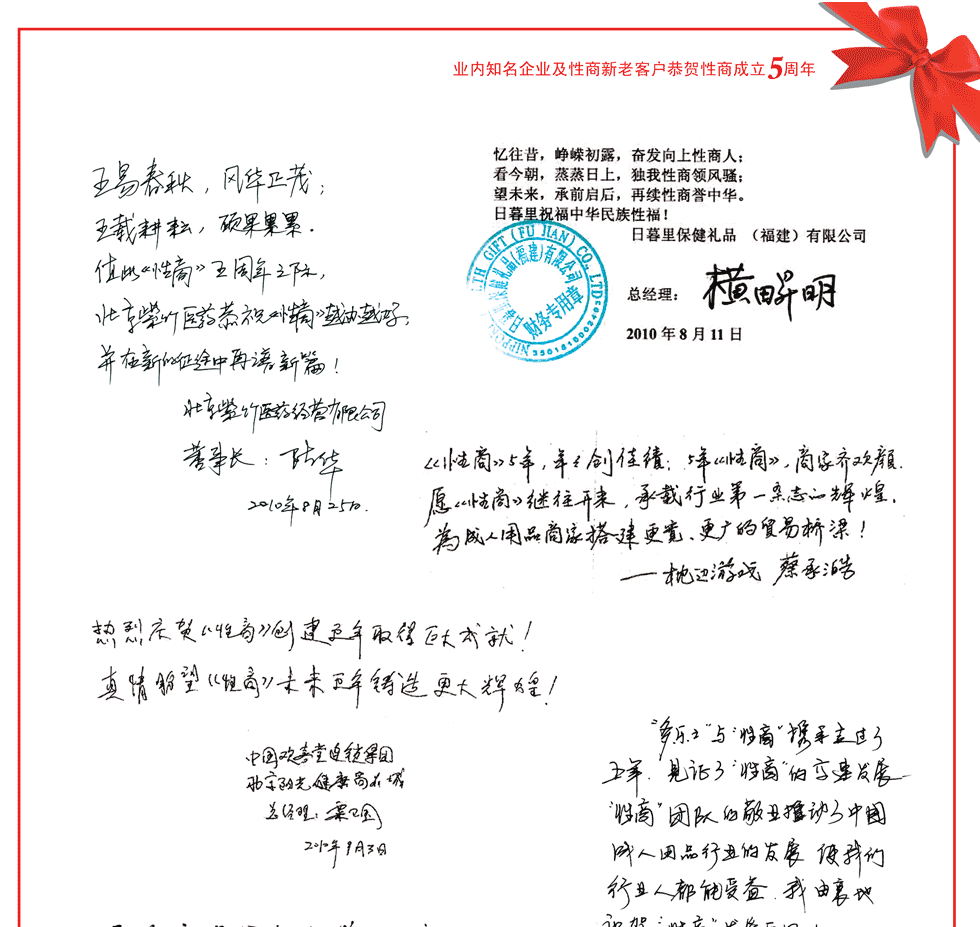 业内知名企业及性商新老客户恭贺性商成立5周年
五易春秋，风华正茂；
五载耕耘，硕果累累．
值此《性商》五周年之际，
北京紫竹医药恭祝《性商》越油越好，
并在新的征途中再谱新篇！
北京紫竹医药经营有限公司
董事长：陆华
2010年8月25日．
忆往昔，峥嵘初露，奋发向上性商人；
看今朝，蒸蒸日上，独我性商领风骚；
望未来，承前启后，再续性商誉中华。
日暮里祝福中华民族性福！
日暮里保健礼品 （福建）有限公司
总经理： 横田昇明
2010 年 8 月 11 日
GIFT (FU JIAN) CO., LTD
礼品(福建)有限公司
财务专用章
《性商》5年，年年创佳绩；5年《性商》，商家齐欢颜．
愿《性商》继往开来，承载行业第一杂志的辉煌，
为成人用品商家搭建更宽、更广的贸易桥梁！
——枕边游戏 蔡承浩
热烈庆贺《性商》创建五年取得巨大成就！
真情盼望《性商》未来五年铸造更大辉煌！
中国欢喜堂连锁集团
北京阳光健康商城
总经理：
2010年9月3日
“多乐士”与“性商”携手走过了
五年．见证了“性商”的高速发展
“性商”团队的敬业推动了中国
成人用品行业的发展 使我们
行业人都能受益．我由衷地